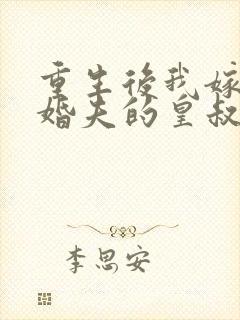 重生後我嫁
婚夫的皇叔
李思安